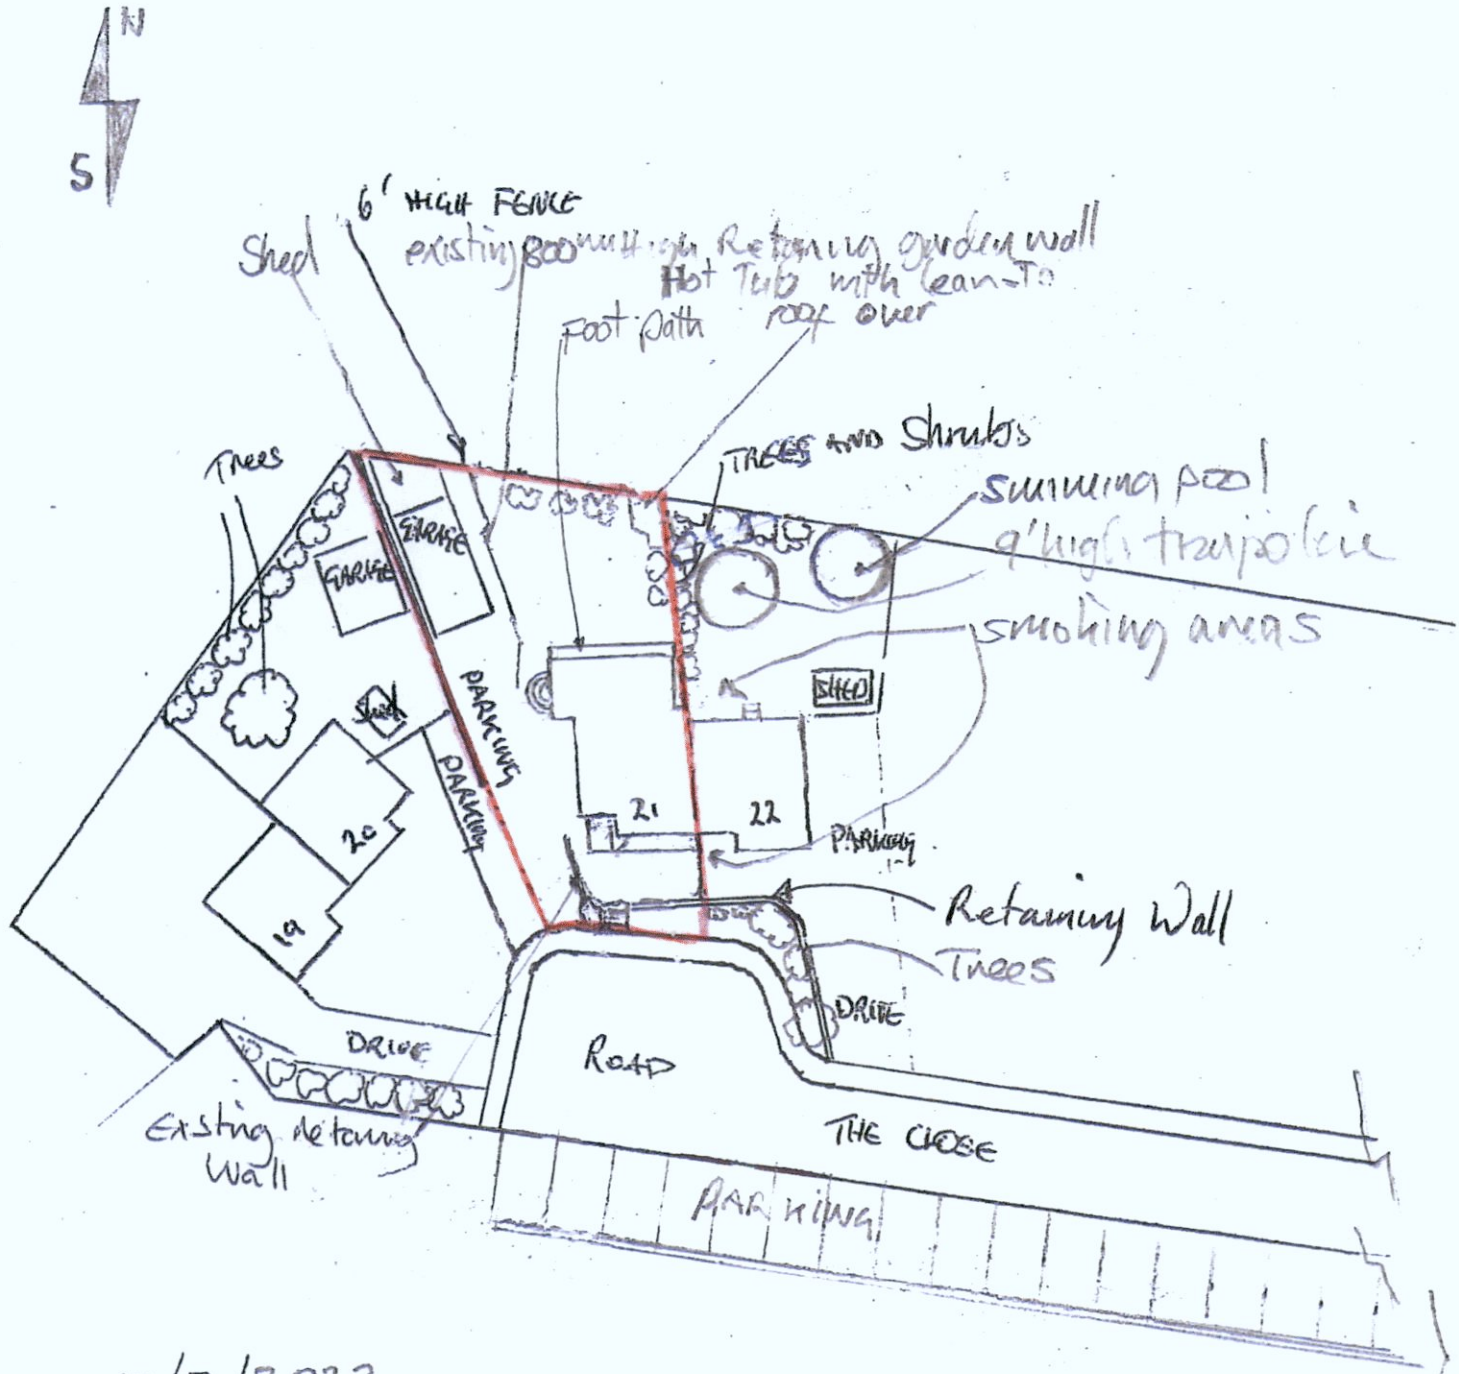 N
S
6' HIGH FENCE
Shed
existing 800mm High Retaining garden wall
Hot Tub with lean-To
roof over
Foot path
Trees
TREES AND Shrubs
swimming pool
9' high
smoking areas
GARAGE
GARAGE
Shed
SHED
PARKING
PARKING
21
22
20
19
PARKING
Retaining Wall
Trees
DRIVE
DRIVE
ROAD
Existing retaining
Wall
THE CLOSE
PARKING